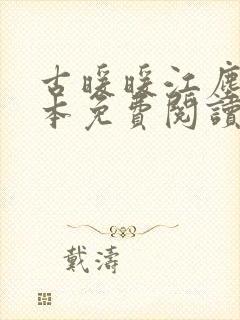 古暖暖江塵
本免費閱讀
戴濤